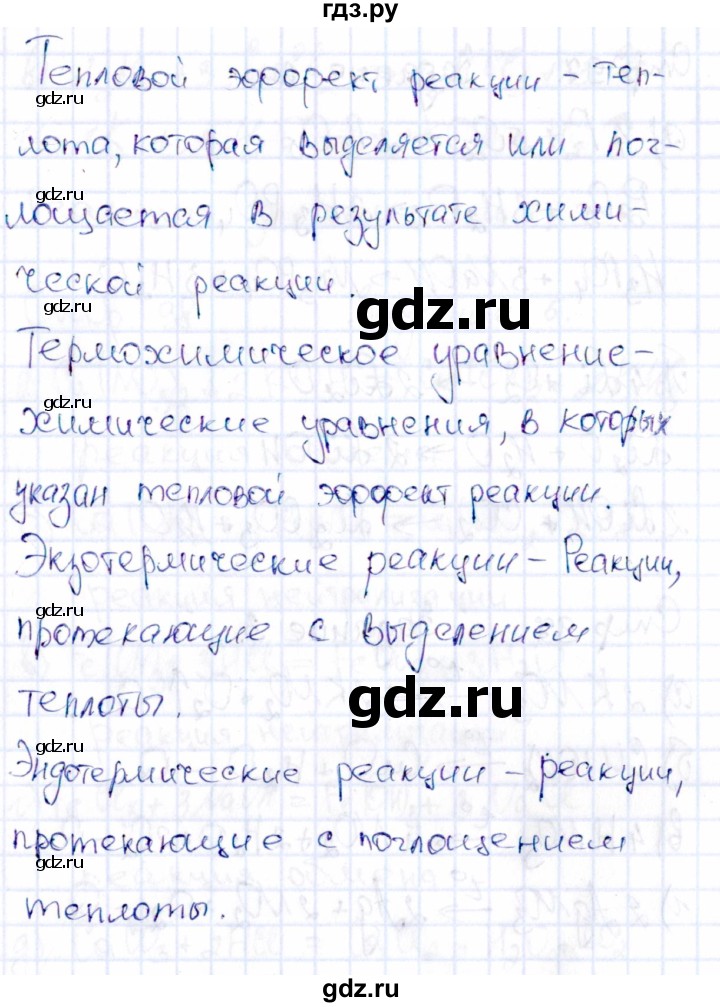 гдз.ру
Тепловой эффект реакции - теп-
gdz.ru
лота, которая выделяется или пог-
gdz.ru
лощается в результате хими-
ческой реакции.
gdz.ru
gdz.ru
Термохимическое уравнение-
gdz.ru
химические уравнения, в которых
gdz.ru
указан тепловой эффект реакции.
Экзотермические реакции - Реакции,
gdz.ru
протекающие с выделением
gdz.ru
теплоты.
gdz.ru
Эндотермические реакции - реакции,
протекающие с поглощением
gdz.ru
теплоты.
gdz.ru
gdz.ru